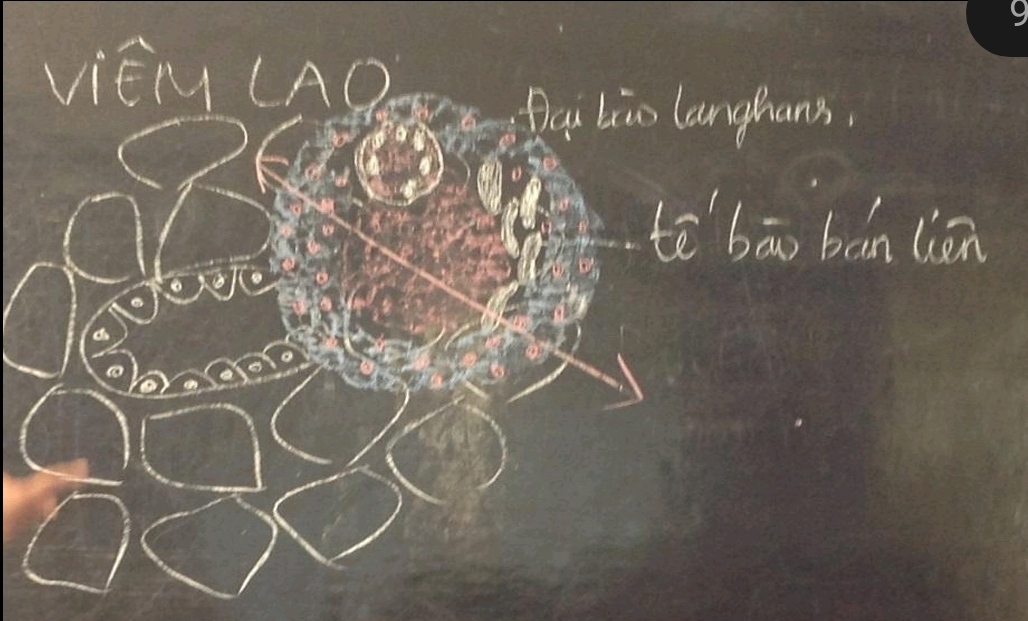 VIÊM LAO
Đại bào langhans.
tế bào bán liên
9